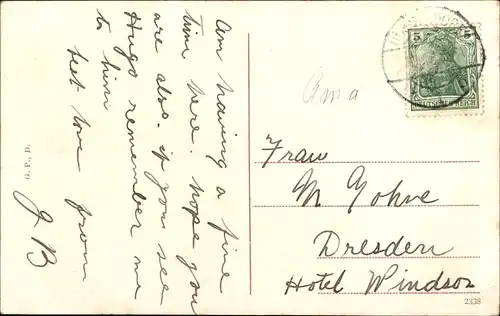 Am having a fine
time here. hope you
are also. if you see
Hugo remember me
to him
best love from
J B
G. F., D.
Ama
5 5
DEUTSCHES REICH
Fraw
M Gohve
Dresden
Hotel Windsor
2338